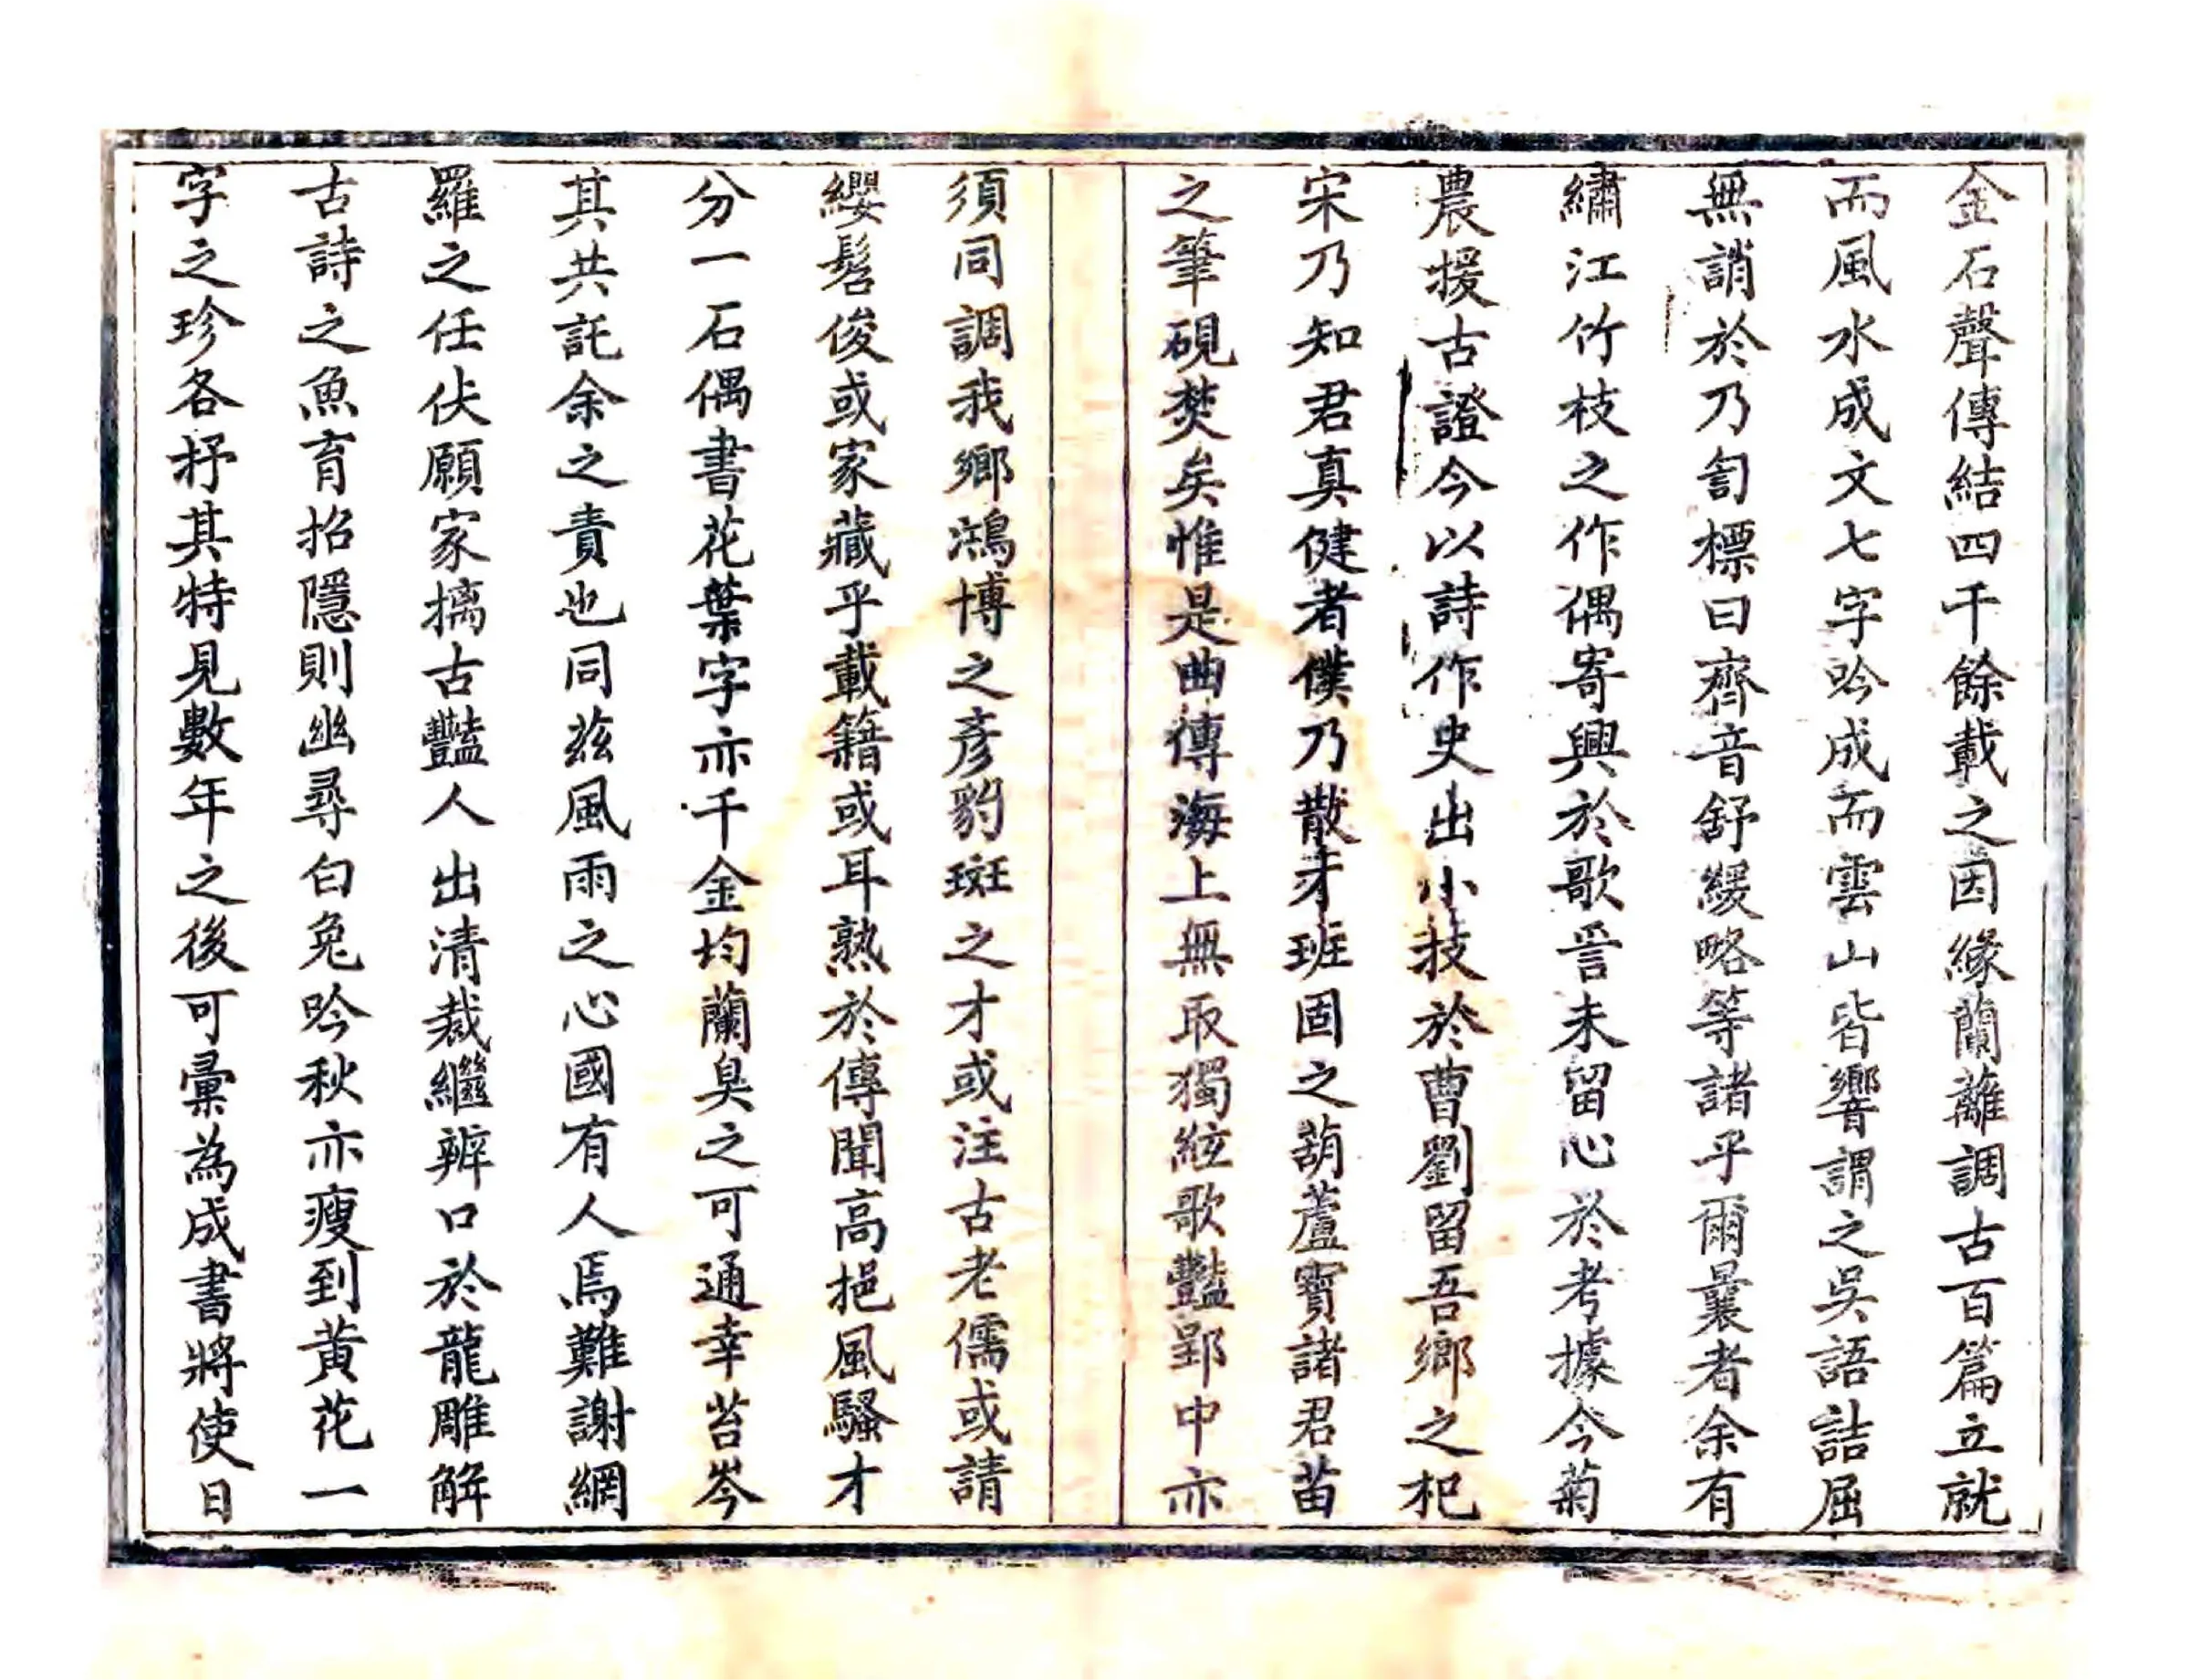 金石聲傳結四千餘載之因緣蘭蘺調古百篇立就
而風水成文七字吟成而雲山皆響謂之吳語詰屈
無誚於乃訇標曰齊音舒緩略等諸乎爾曩者余有
繡江竹枝之作偶寄興於歌詈未留心於考據今菊
農援古證今以詩作史出小技於曹劉留吾鄉之杞
宋乃知君真健者僕乃散才班固之葫蘆寶諸君苗
之筆硯焚矣惟是曲傳海上無取獨絃歌豔郢中亦
須同調我鄉鴻博之彥豹斑之才或注古老儒或請
纓髫俊或家藏乎載籍或耳熟於傳聞高挹風騷才
分一石偶書花葉字亦千金均蘭臭之可通幸苔岑
其共託余之責也同茲風雨之心國有人焉難謝網
羅之任伏願家摛古豔人出清裁繼辨口於龍雕解
古詩之魚育招隱則幽尋白兔吟秋亦瘦到黃花一
字之珍各抒其特見數年之後可彙為成書將使日